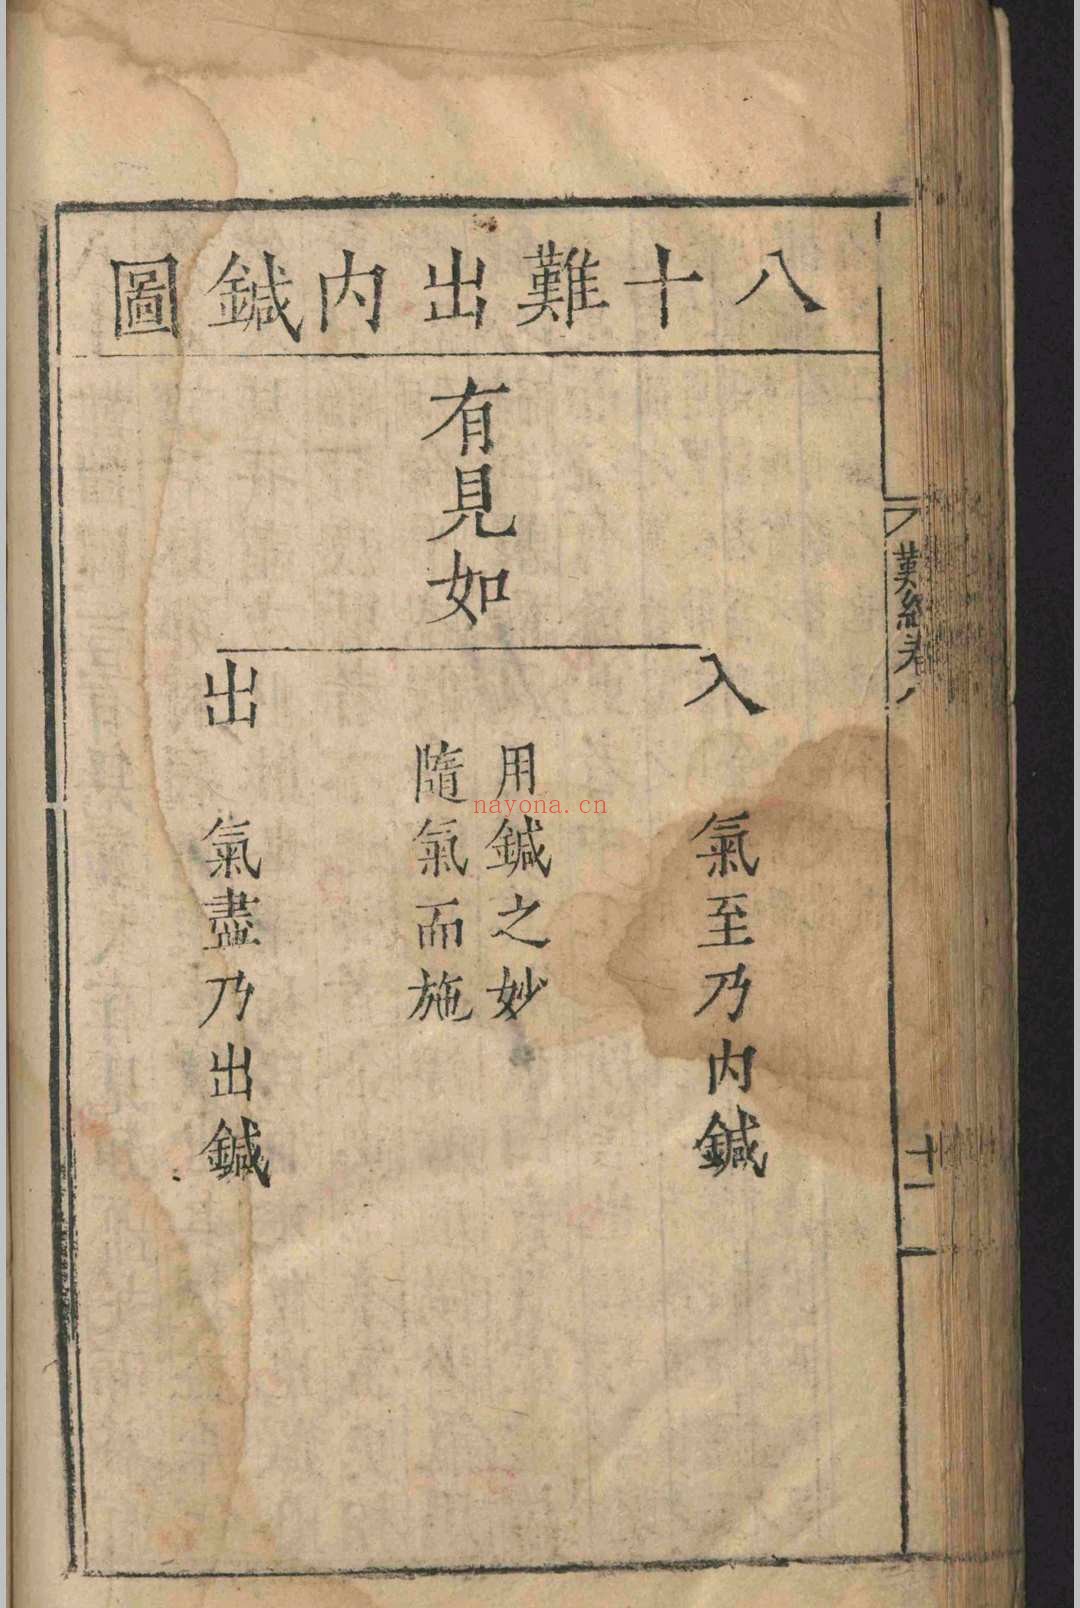 八十難出內鍼圖
有見如
入
氣至乃內鍼
用鍼之妙
隨氣而施
出
氣盡乃出鍼
難經卷八
十一
nayona.cn